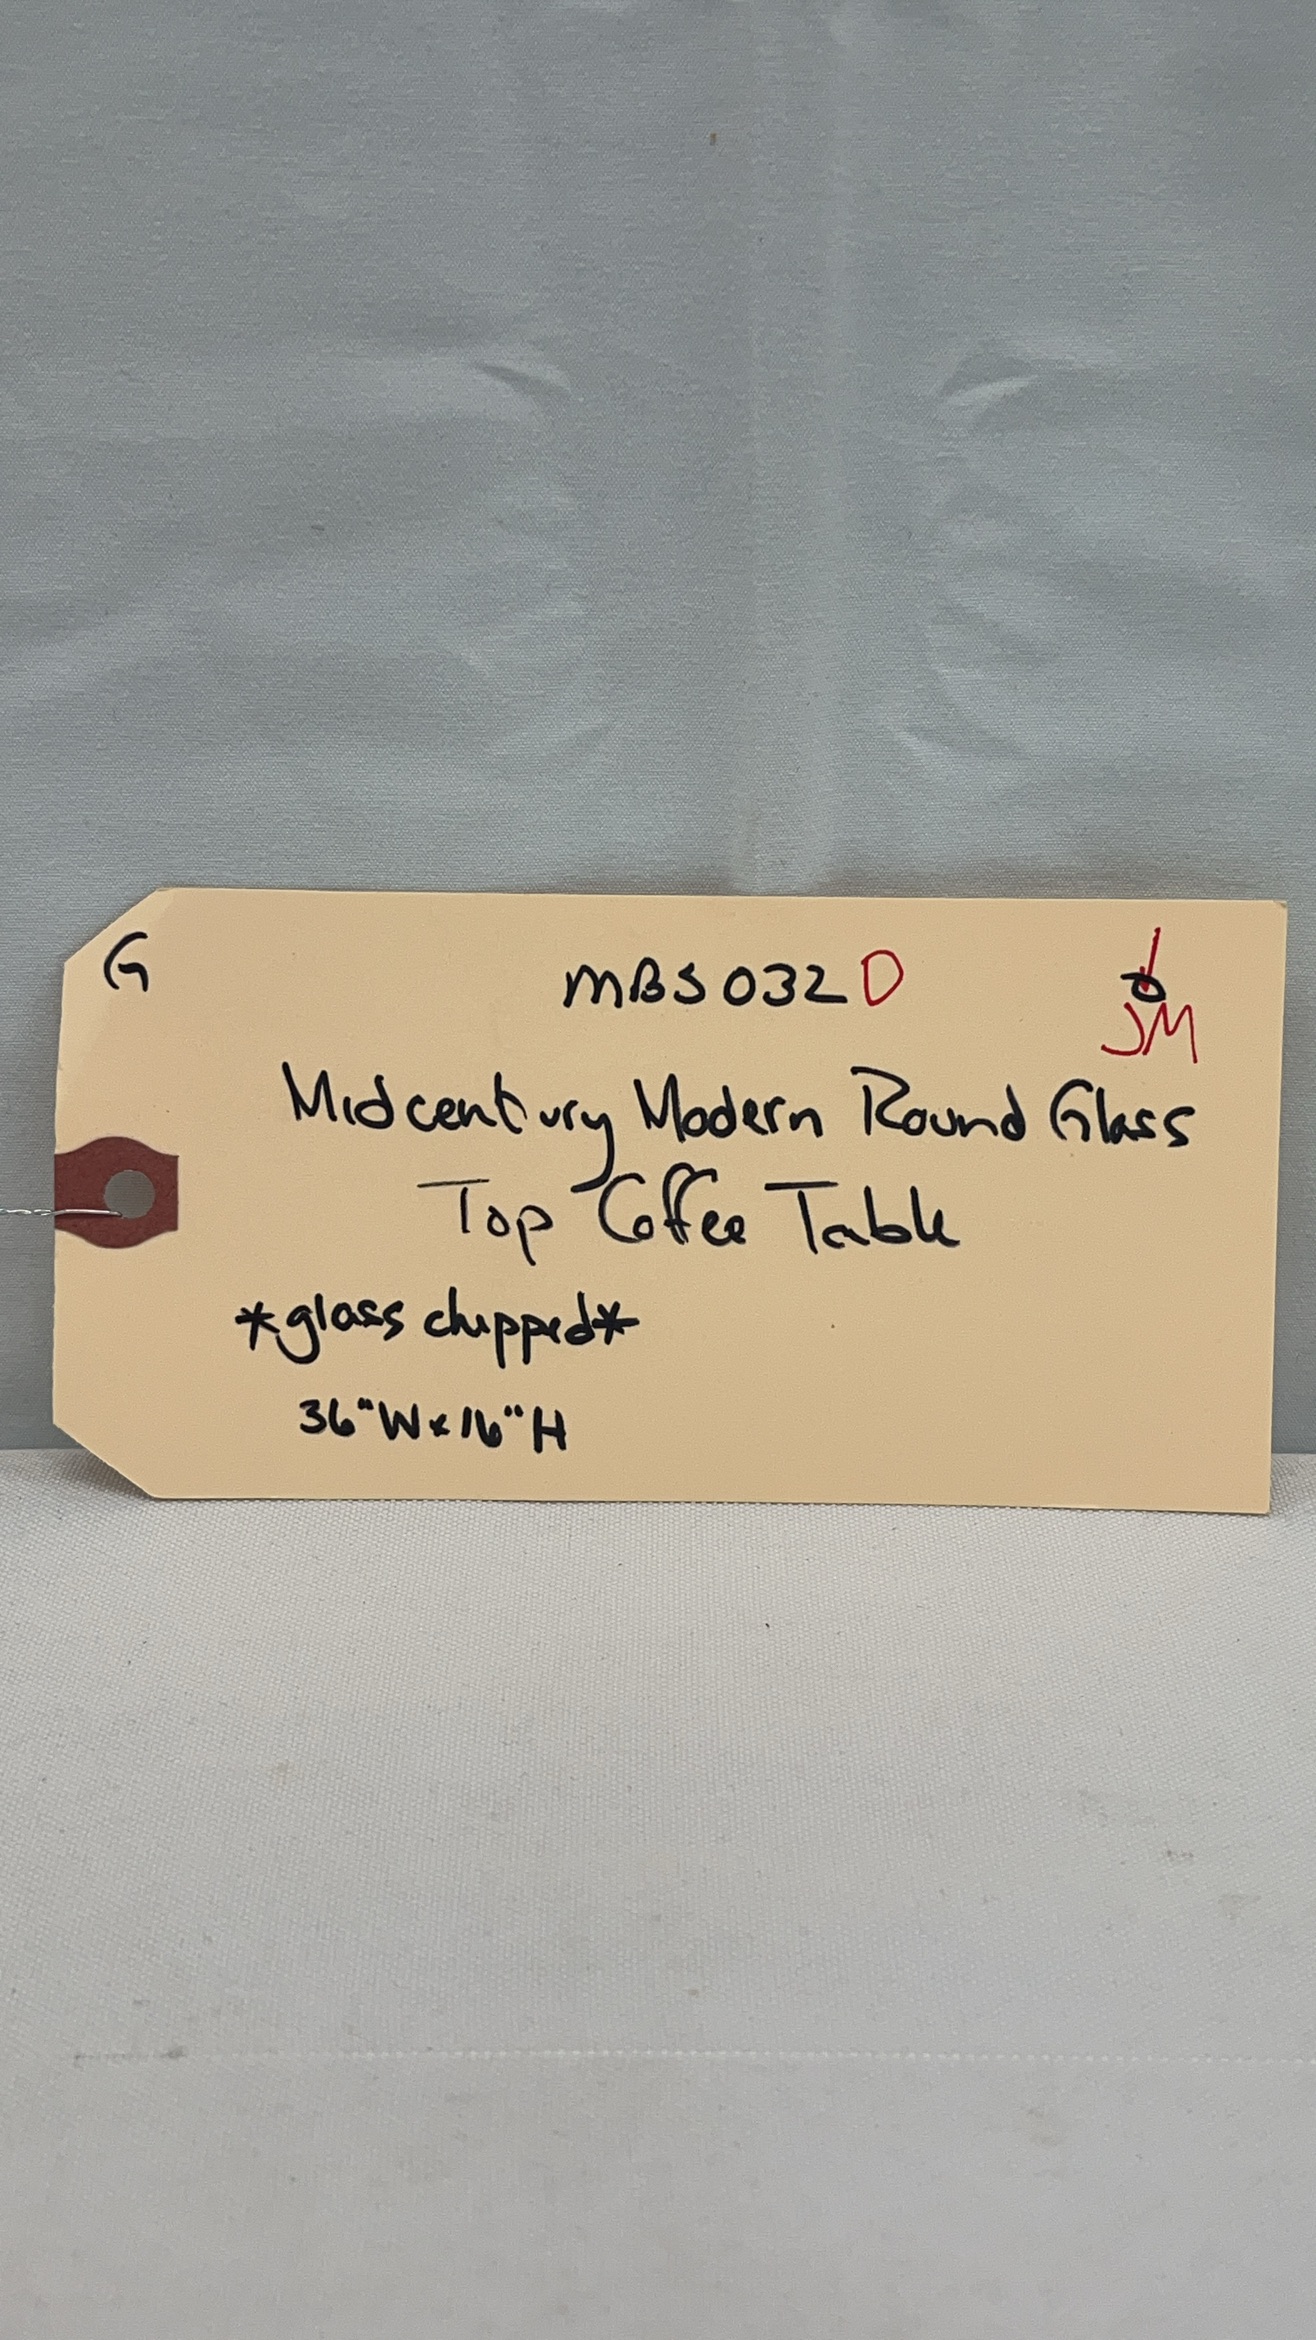 G
MBS032D
JM
Midcentury Modern Round Glass
Top Coffee Table
*glass chipped*
36"W x 16"H